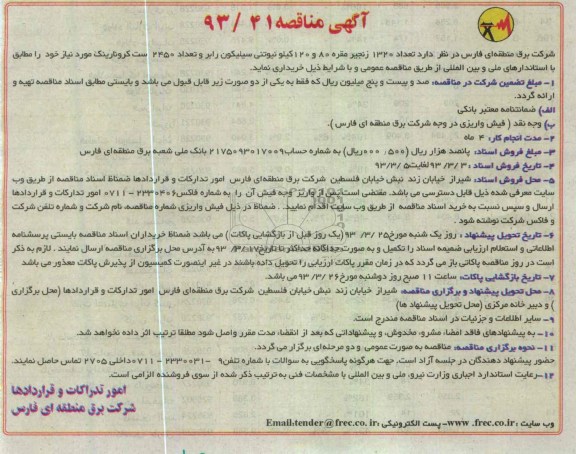 آگهی مناقصه ۴۱ /۹۳
شرکت برق منطقه‌ای فارس در نظر دارد تعداد ۱۳۲۰ زنجیر مقره ۸۰ و ۱۲۰ کیلو نیوتنی سیلیکون رابر و تعداد ۲۴۵۰ ست کرونارینگ مورد نیاز خود را مطابق
با استاندارهای ملی و بین المللی از طریق مناقصه عمومی و با شرایط ذیل خریداری نماید.
۱- مبلغ تضمین شرکت در مناقصه: صد و بیست و پنج میلیون ریال که فقط به یکی از دو صورت زیر قابل قبول می باشد و بایستی مطابق اسناد مناقصه تهیه و
ارائه گردد.
الف) ضمانتنامه معتبر بانکی
ب) وجه نقد ( فیش واریزی در وجه شرکت برق منطقه ای فارس ).
۲- مدت انجام کار: ۴ ماه
۳- مبلغ فروش اسناد: پانصد هزار ریال (۵۰۰/۰۰۰ریال) به شماره حساب۲۱۷۵۰۹۳۰۱۷۰۰۹ بانک ملی شعبه برق منطقه‌ای فارس
۴- تاریخ فروش اسناد: ۹۳/۳/۳ لغایت۹۳/۳/۵
۵- محل فروش اسناد: شیراز خیابان زند نبش خیابان فلسطین شرکت برق منطقه‌ای فارس امور تدارکات و قراردادها ضمناً اسناد مناقصه از طریق وب
سایت معرفی شده ذیل قابل دسترسی می باشد. مقتضی است پس از واریز وجه فیش آن را به شماره فاکس۲۳۳۰۴۰۶-۰۷۱۱ امور تدارکات و قراردادها
ارسال و سپس نسبت به خرید اسناد مناقصه از طریق وب سایت اقدام نمایید. ضمناً در ذیل فیش واریزی شماره مناقصه، نام شرکت و شماره تلفن شرکت
و فاکس شرکت نوشته شود.
۶- تاریخ تحویل پیشنهاد: روز یک شنبه مورخ۲۵ /۳/ ۹۳ (یک روز قبل از بازگشایی پاکات) می باشد ضمناً خریداران اسناد مناقصه بایستی پرسشنامه
اطلاعاتی و استعلام ارزیابی ضمیمه اسناد را تکمیل و به صورت جداگانه حداکثر تا تاریخ۱۷ /۳/ ۹۳ به آدرس محل برگزاری مناقصه ارسال نمایند . لازم به ذکر
است در روز مناقصه پاکاتی باز می گردد که در زمان مقرر پاکات ارزیابی را تحویل داده باشند در غیر اینصورت کمیسیون از پذیرش پاکات معذور می باشد
۷- تاریخ بازگشایی پاکات: ساعت ۱۱ صبح روز دوشنبه مورخ۲۶ /۳/ ۹۳ می باشد.
۸- محل تحویل پیشنهاد و برگزاری مناقصه: شیراز خیابان زند نبش خیابان فلسطین شرکت برق منطقه‌ای فارس امور تدارکات و قراردادها (محل برگزاری
) و دبیر خانه مرکزی (محل تحویل پیشنهاد ها)
۹- سایر اطلاعات و جزئیات در اسناد مناقصه مندرج است.
۱۰- به پیشنهادهای فاقد امضاء مشرو، مخدوش و پیشنهاداتی که بعد از انقضاء مدت مقرر واصل شود مطلقا ترتیب اثر داده نخواهد شد.
۱۱- نحوه برگزاری مناقصه: مناقصه به صورت عمومی و دو مرحله‌ای برگزار می گردد.
حضور پیشنهاد دهندگان در جلسه آزاد است. جهت هرگونه پاسخگویی به سوالات با شماره تلفن۹ -۲۳۳۰۰۳۱-۰۷۱۱داخلی ۲۷۰۵ تماس حاصل نمایند.
۱۲-رعایت استاندارد اجباری وزارت نیرو، ملی و بین المللی با مشخصات فنی به ترتیب ذکر شده از سوی فروشنده الزامی است.
امور تدراکات و قراردادها
شرکت برق منطقه ای فارس
وب سایت :www .frec.co.ir-پست الکترونیکی :Email:tender@frec.co.ir